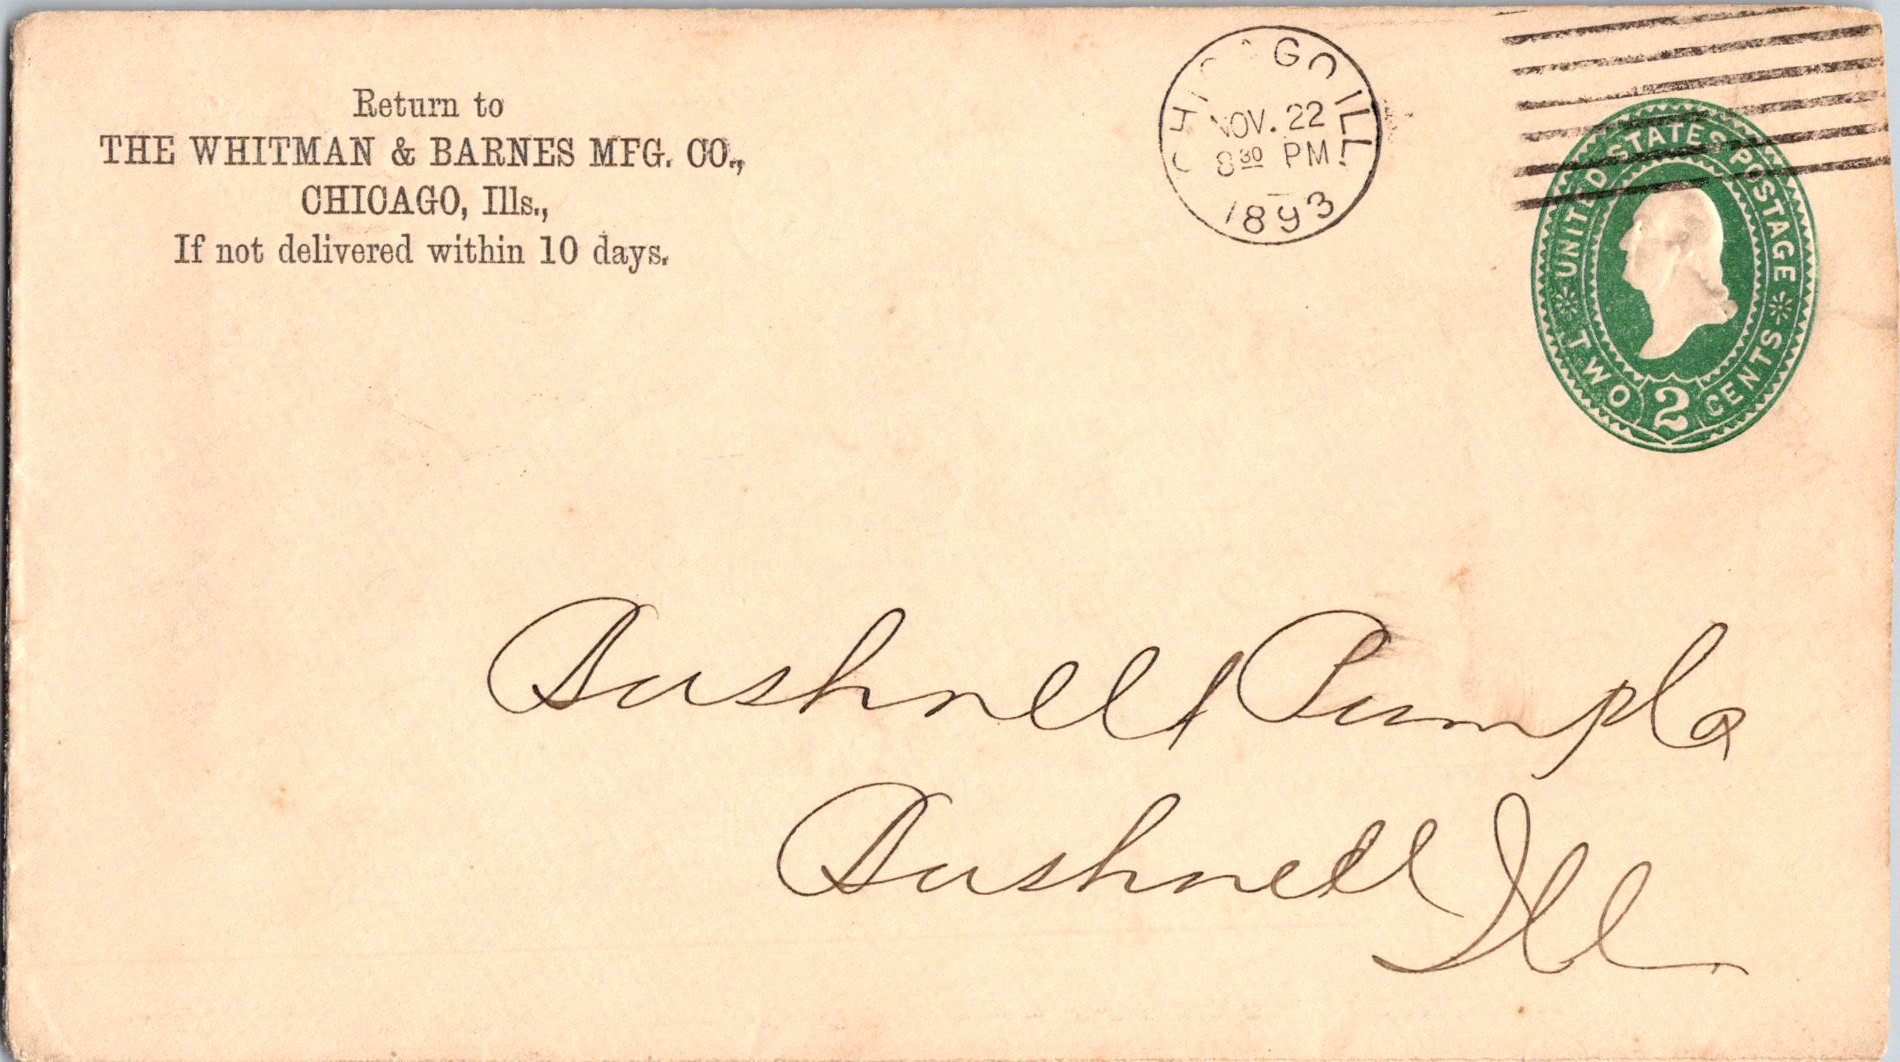 Return to
THE WHITMAN & BARNES MFG. CO.,
CHICAGO, Ills.,
If not delivered within 10 days.
CHICAGO ILL.
NOV. 22
8 30 PM
1893
UNITED STATES POSTAGE
TWO 2 CENTS
Bushnell Pump Co
Bushnell Ill